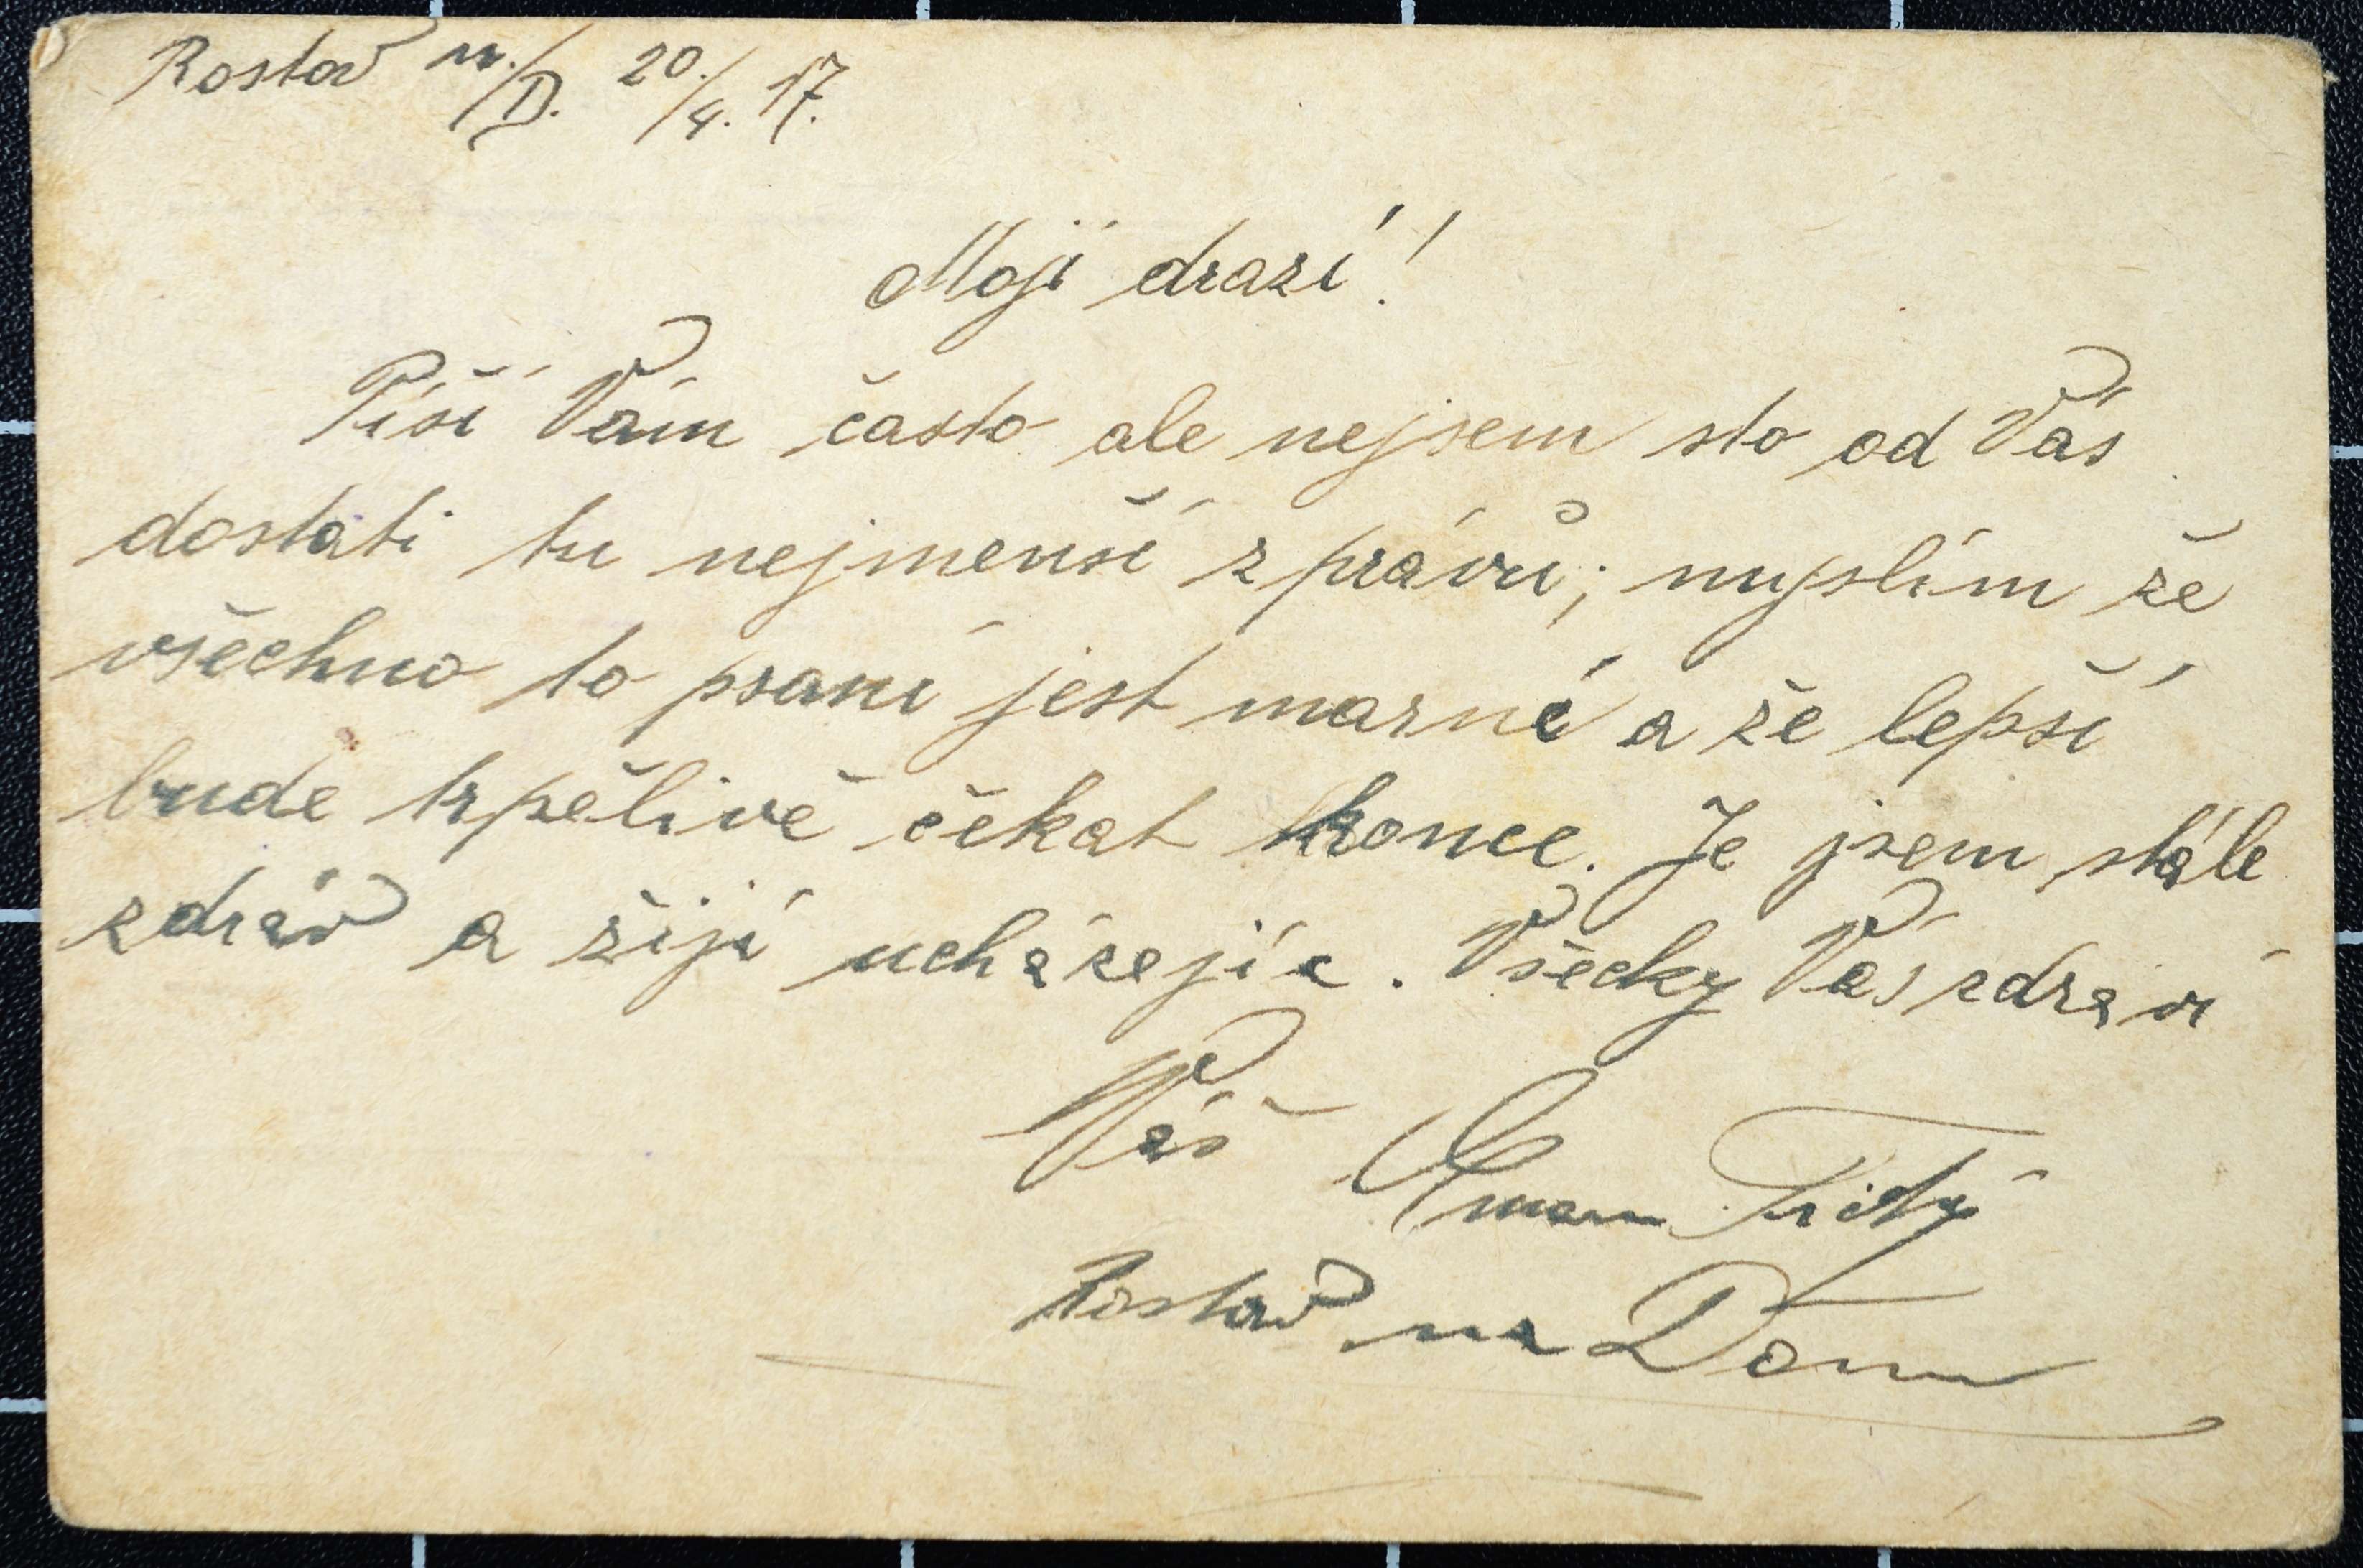 Rostov n./D. 20./4. 17.
Moji drazí!
Píši Vám často ale nejsem sto od Vás
dostati tu nejmenší zprávů; myslím že
všechno to psaní jest marné a že lepší
bude trpělivě čekat konce. Je jsem stále
zdráv a žiji ucházejíc. Všecky Vás zdraví
Váš Eman Tichý
Rostov na Donu